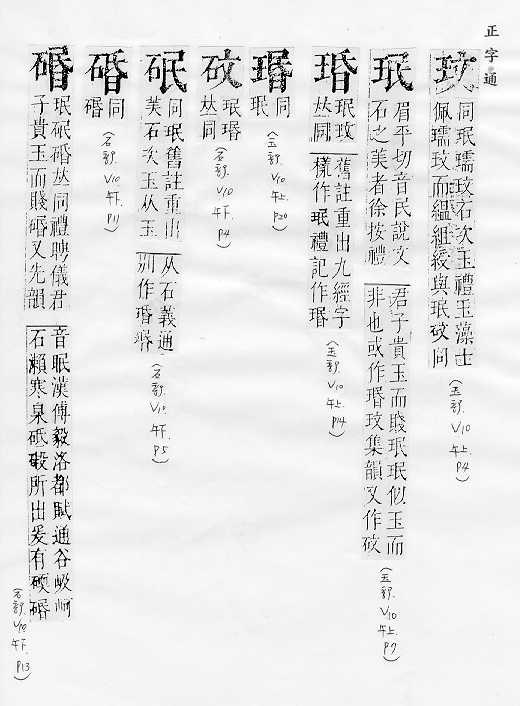 正字通
玟
同珉瓀玟石次玉禮玉藻士
佩瓀玟而縕組綬與珉砇同
(玉部. V10 午上. P4)
珉
眉平切音民說文
石之美者徐按禮
君子貴玉而賤珉珉似玉而
非也或作瑉玟集韻又作砇
(玉部. V10 午上. P7)
琘
珉玟
𠀤同
舊註重出九經字
樣作珉禮記作瑉
(玉部. V10 午上. P14)
瑉
同
珉
(玉部. V10 午上. P20)
砇
珉瑉
𠀤同
(石部. V10 午下. P4)
砇
同珉舊註重出
芙石次玉从玉
从石義通
別作瑉
(石部. V10 午下. P5)
碈
同
(石部. V10 午下. P11)
珉砇𠀤同禮聘儀君
子貴玉而賤碈又先韻
音眠漢傅毅洛都賦通谷岋岢
石瀨寒泉砥礉所出爰有碝碈
(石部. V10 午下. P13)